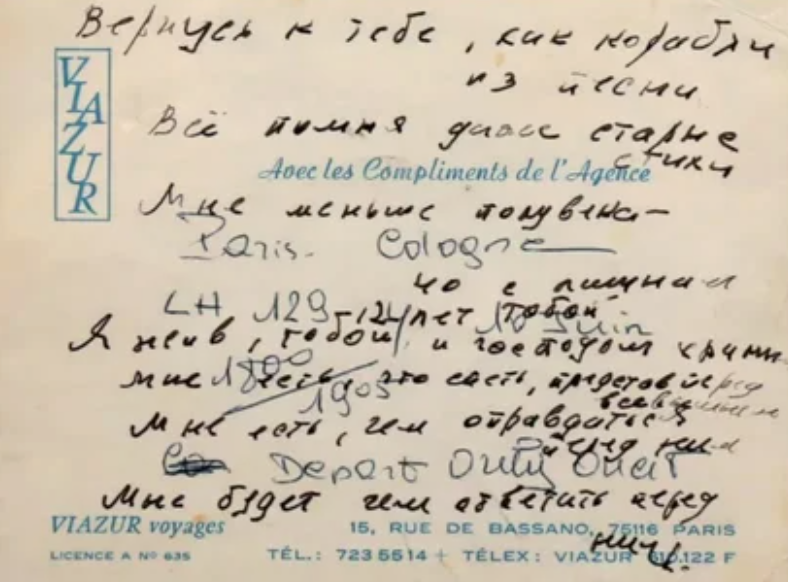 Вернусь к тебе, как корабли
из песни
Всё помня даже старые
стихи
VIAZUR
Avec les Compliments de l'Agence
Мне меньше полувека—
Paris. Cologne
но с лишним
LH 129 10 Juin
12 лет тобой
Я жив, тобой и господом храним
1800
1905
мне есть, что спеть, представ перед
всевышним
Мне есть, чем оправдаться
перед ним
Depart Orly Ouest
Мне будет чем ответить перед
ним.
VIAZUR voyages
15, RUE DE BASSANO, 75116 PARIS
LICENCE A Nº 635
TÉL.: 723 5514 + TÉLEX: VIAZUR 610.122 F